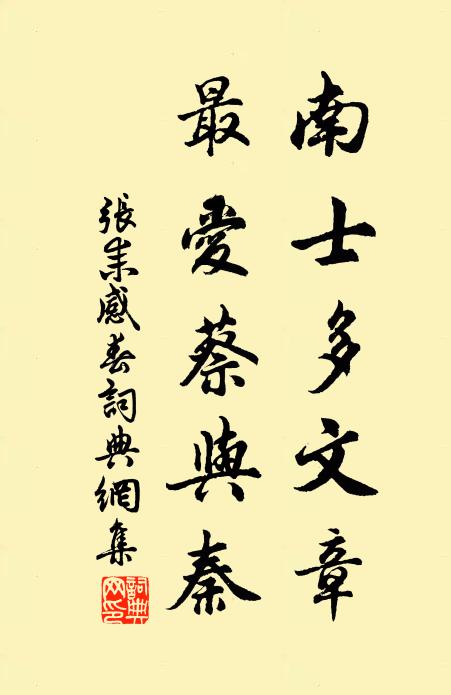 南士多文章
最愛蔡與秦
張耒感春詞典網集
詞典网印